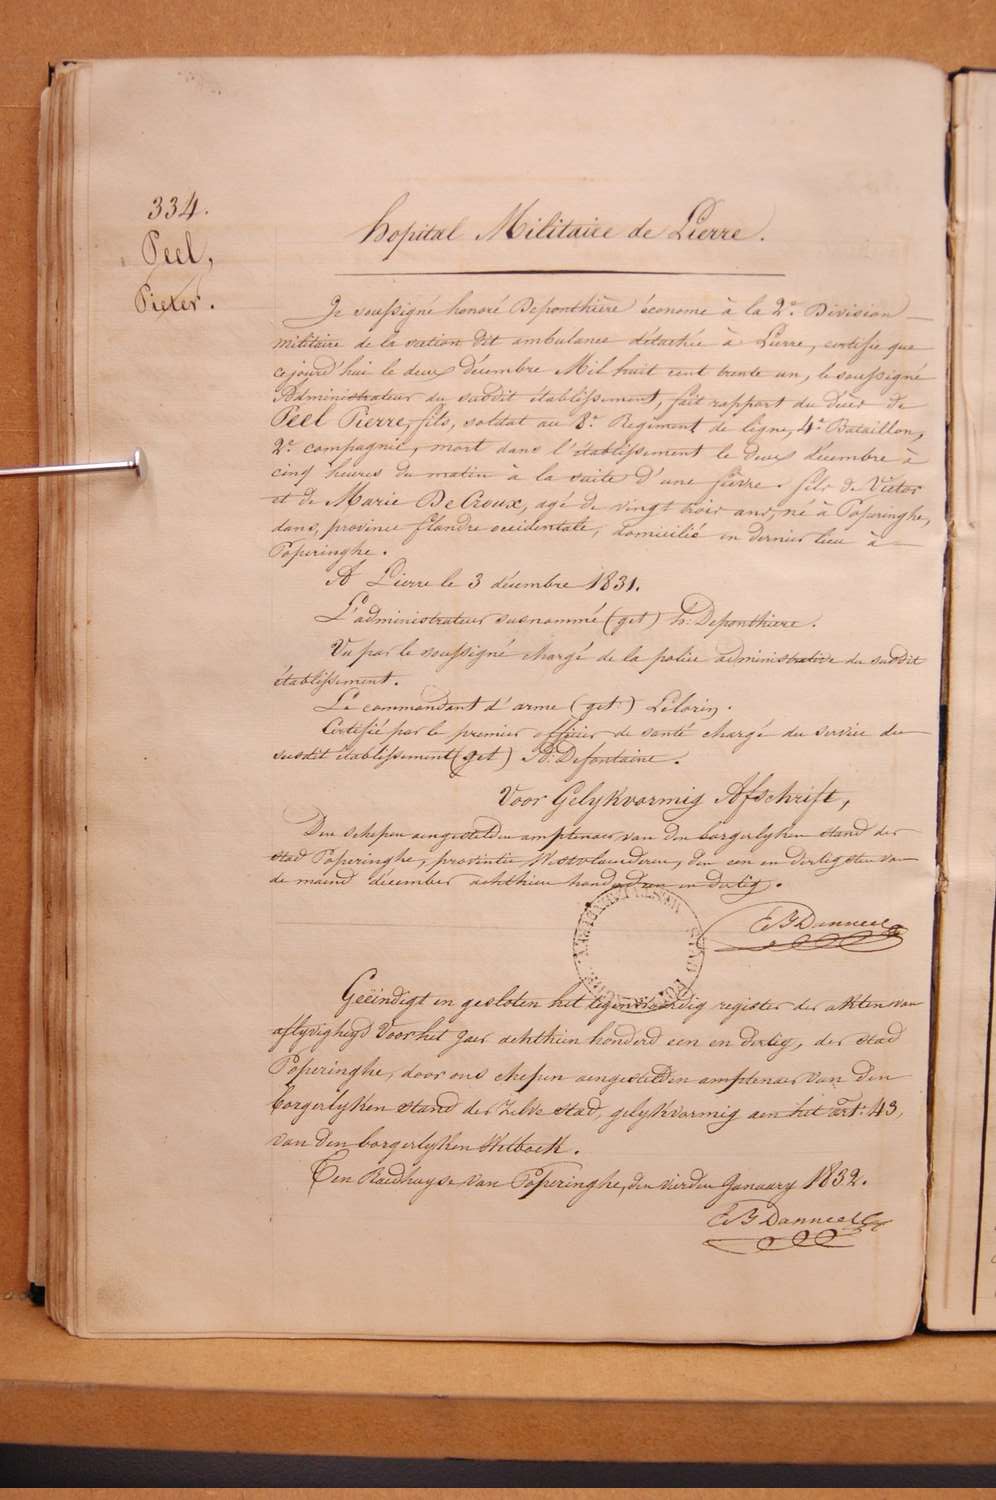 334.
Peel,
Pieter.
hopital Militaire de Lierre.
Je soussigné honoré Deponthière économe à la 2e Division
militaire de la station dit ambulance détachée à Lierre, certifie que
cejourd'hui le deux décembre Mil huit cent trente un, le soussigné
Administrateur du susdit établissement, fait rapport du décès de
Peel Pierre, fils, soldat au 8e Regiment de ligne, 4e Bataillon,
2e compagnie, mort dans l'établissement le deux décembre à
cinq heures du matin à la suite d'une fièvre. fils de Victor
et de Marie DeCroux, agé de vingt trois ans, né à Poperinghe,
dans, province flandre occidentale, domicilié en dernier lieu à
Poperinghe.
A Lierre le 3 décembre 1831.
L'administrateur susnommé (get) h: Deponthiere.
Vu par le soussigné chargé de la police administrative du susdit
établissement.
Le commandant d'arme (get) Lelorin.
Certifié par le premier officier de santé chargé du service du
susdit établissement (get) Defontaine.
Voor Gelykvormig Afschrift,
Den schepen aengestelden amptenaer van den borgerlyken stand der
stad Poperinghe, provintie Westvlaenderen, den een en dertigsten van
de maend december achthien honderd een en dertig.
EB Danneel
Geëindigt en gesloten het tegenwoordig register der akten van
aflyvigheyd voor het jaer achthien honderd een en dertig, der stad
Poperinghe, door ons schepen aengestelden amptenaer van den
borgerlyken stand der zelve stad, gelykvormig aen het art: 43,
van den borgerlyken Wetboek.
Ten Raedhuyse van Poperinghe, den vierden January 1832.
EB Danneel